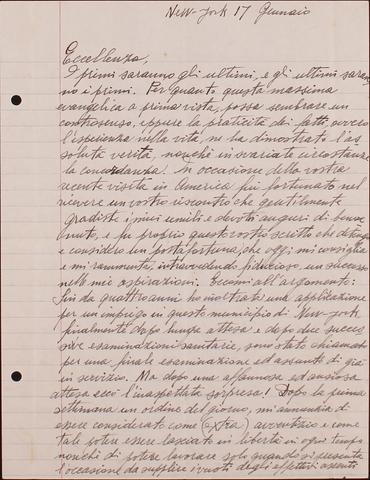 New-York 17 Gennaio
Eccellenza,
I primi saranno gli ultimi, e gli ultimi saran
no i primi. Per quanto questa massima
evangelica a prima vista, possa sembrare un
controsenso, eppure la praticità dei fatti, ovvero
l'esperienza nella vita, ne ha dimostrato l'as
soluta verità, nonché in svariate circostanze
la concordanza. In occasione della vostra
recente visita in America fui fortunato nel
ricevere un vostro riscontro che gentilmente
gradiste i miei umili e devoti auguri di benve
nuto, e fu proprio questo vostro scritto che detengo
e considero un portafortuna, che oggi mi consiglia
e mi rammenta, intravedendo fiducioso, un successo
nelle mie aspirazioni. Eccomi all'argomento:
Sin da quattro anni ho inoltrato una applicazione
per un impiego in questo municipio di New-York
finalmente dopo lunga attesa e dopo due succes
sive esaminazioni sanitarie, sono stato chiamato
per una finale esaminazione ed assunto di già
in servizio. Ma dopo una affannosa ed ansiosa
attesa ecco l'inaspettata sorpresa! Dopo la prima
settimana un ordine del giorno, mi annunzia di
essere considerato come (extra) avventizio e come
tale potere essere lasciato in libertà in ogni tempo
nonchi di potere lavorare solo quando si presenta
l'occasione da supplire i vuoti degli effettivi assenti